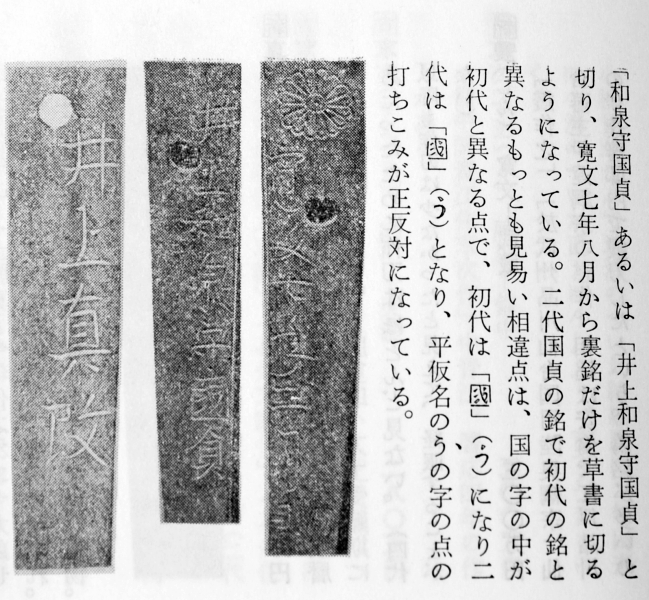 「和泉守国貞」あるいは「井上和泉守国貞」と
切り、寛文七年八月から裏銘だけを草書に切る
ようになっている。二代国貞の銘で初代の銘と
異なるもっとも見易い相違点は、国の字の中が
初代と異なる点で、初代は「國」(う)になり二
代は「國」(う)となり、平仮名のうの字の点の
打ちこみが正反対になっている。
井上和泉守國貞
井上真改